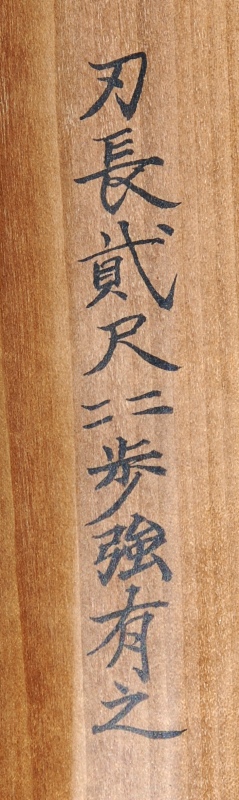 刃長貳尺二二歩強有之